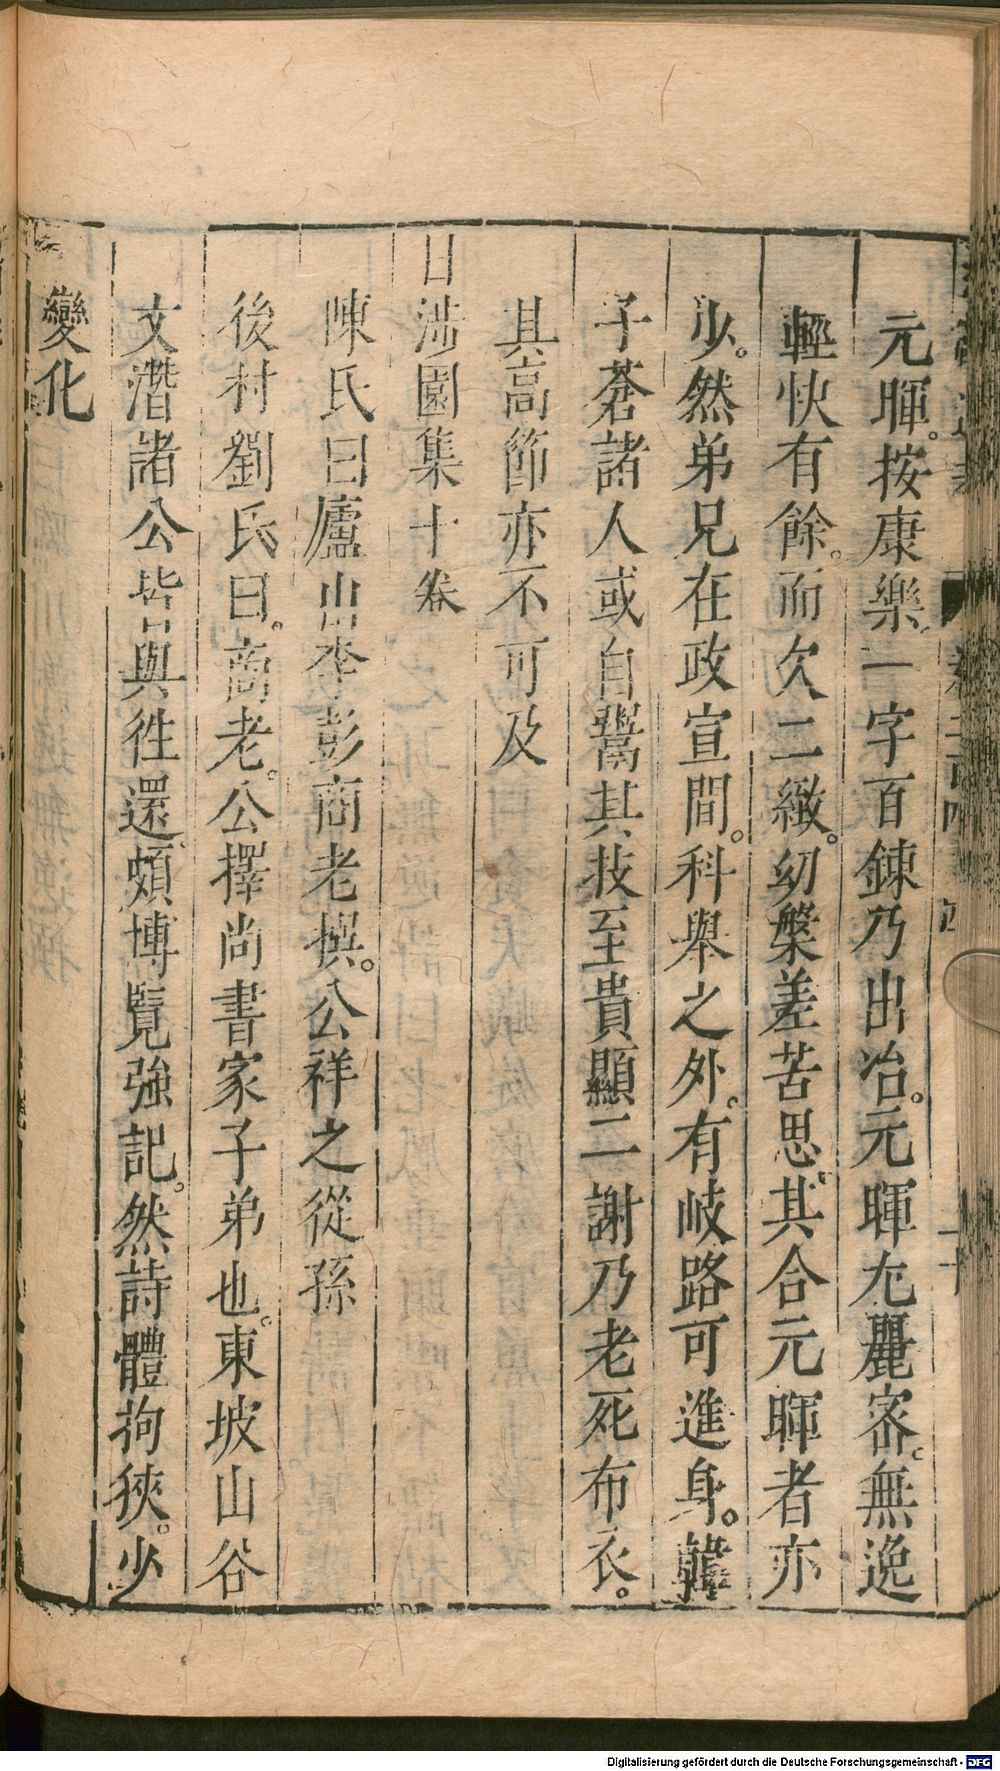 元暉。按康樂一字百鍊乃出冶。元暉尢麗宻。無逸
輕快有餘。而欠二緻。幼槃差苦思。其合元暉者亦
少。然弟兄在政宣間。科舉之外。有岐路可進身。韓
子蒼諸人或自鬻其技至貴顯二謝乃老死布衣。
其高節亦不可及
日渉園集十卷
陳氏曰廬山李彭商老撰。公祥之從孫
後村劉氏曰。商老。公擇尚書家子弟也。東坡山谷
文潛諸公皆與徃還頗博覽強記。然詩體拘狹。少
變化
Digitalisierung gefördert durch die Deutsche Forschungsgemeinschaft - DFG